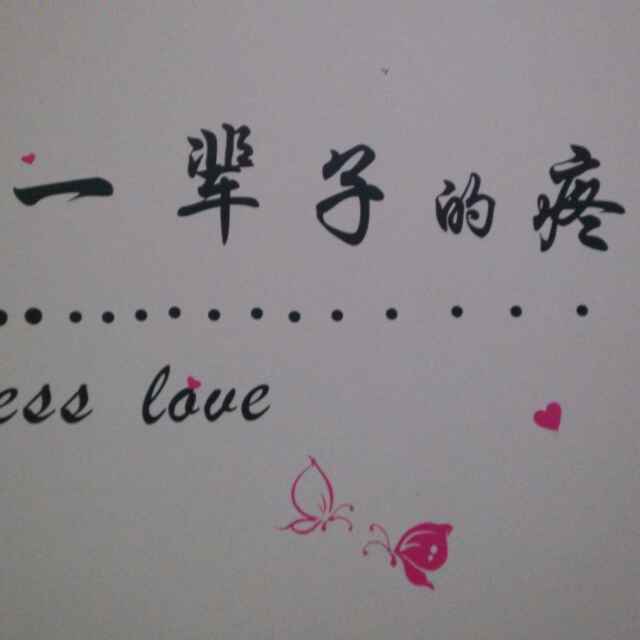 一辈子的疼
ess love